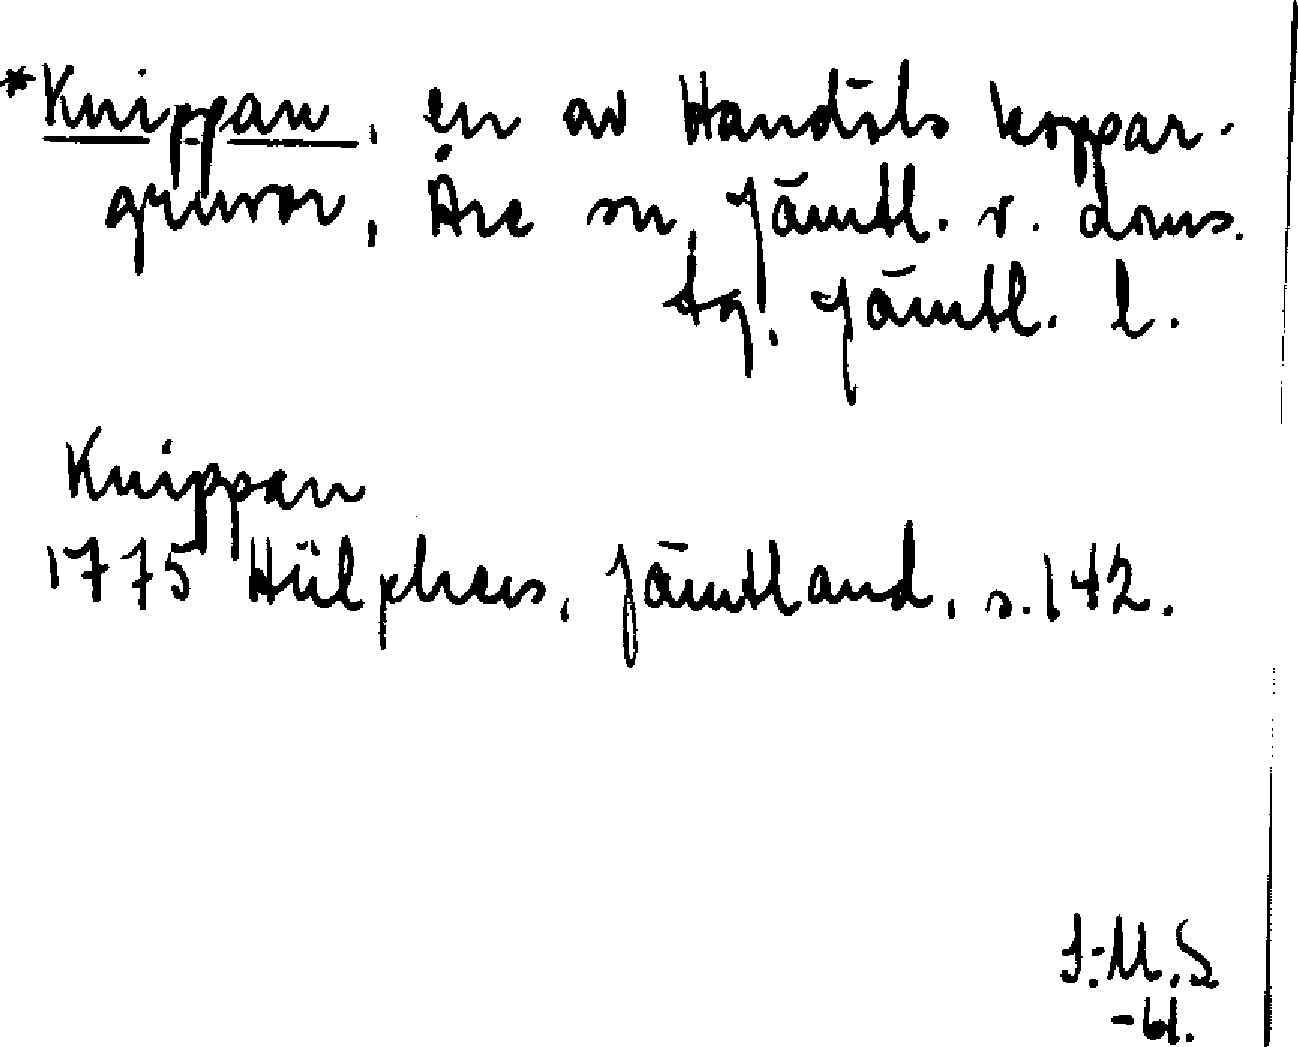 *Knippan, en av Handöls koppar-
gruvor, Åre sn, Jämtl. v. doms.
tg, Jämtl. l.
Knippan
1775 Hülphers, Jämtland, s. 142.
I.-M.S.
-61.